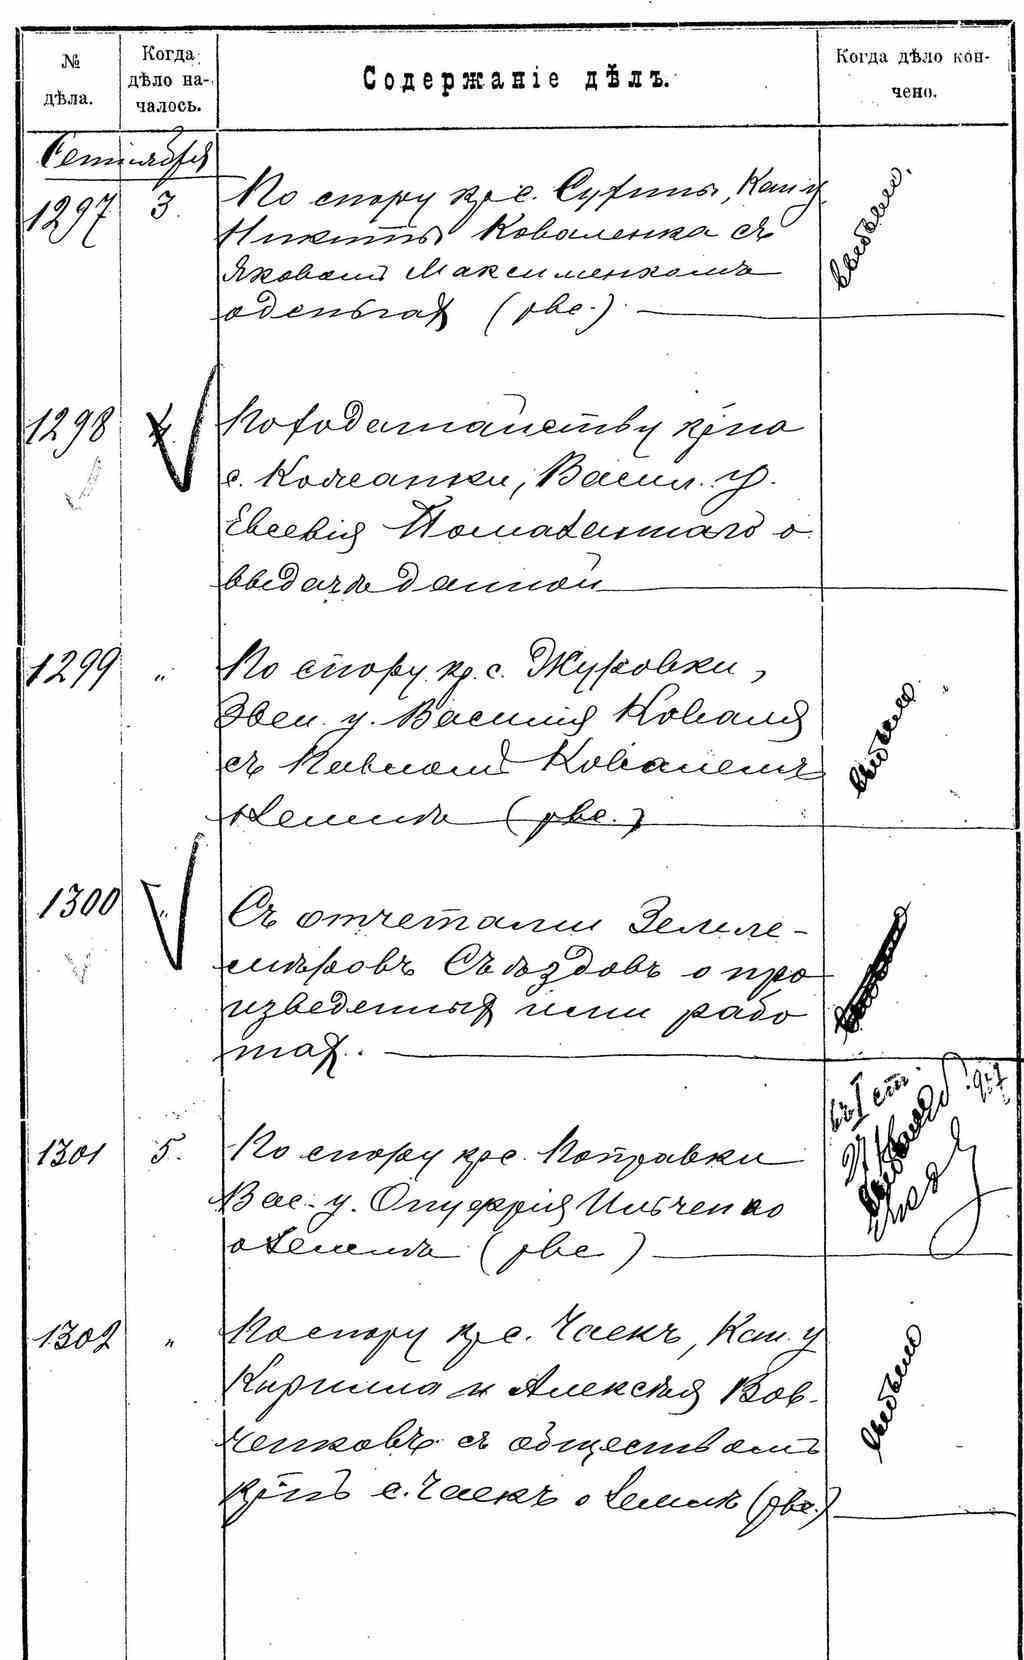 № дѣла.
Когда дѣло началось.
Содержаніе дѣлъ.
Когда дѣло кончено.
Сентября
1297 3. По спору кр. с.
Никиты Коваленка съ
Яковомъ Максименкомъ
о деньгах (рвс.)
выбыло.
1298 4. По ходатайству кр-на
с. Кожанки, Васил. у.
Евсевія о
выдачѣ данной
1299 " По спору кр. с. Журовки,
Звен. у. Василія Коваля
съ Павломъ Ковалемъ
о землѣ (рвс.)
выбыло
1300 " Съ отчетами Землемѣровъ Съѣздовъ о произведенных ими работах.
1301 5. По спору кр. с. Потравки
Вас. у. Онуфрія Ильченко
о землѣ (рвс)
въ I ст.
1302 " По спору кр. с. Чаекъ, Кан. у
Кирилла и Алексѣя Вовченковъ съ обществомъ
кр-нъ с. Чаекъ о землѣ (рвс.)
выбыло